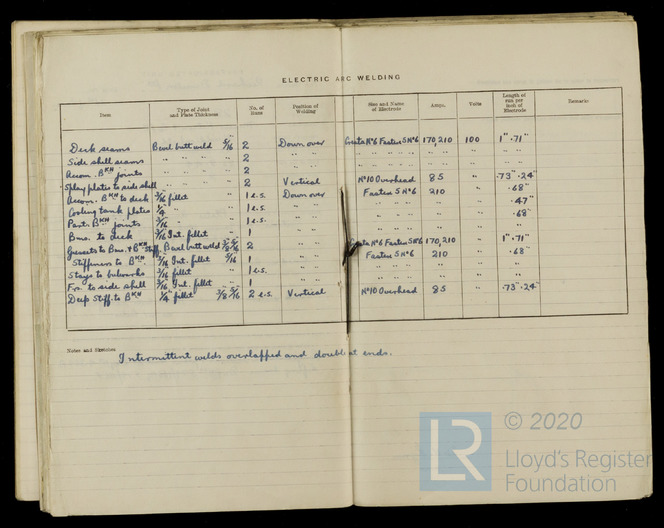 ELECTRIC ARC WELDING
Item Type of Joint and Plate Thickness No. of Runs Position of Welding Size and Name of Electrode Amps. Volts Length of run per Inch of Electrode Remarks
Deck seams Bevel butt weld 5/16" 2 Down over 6 Fastex 5 Nº6 170, 210 100 1" .71"
Side shell seams " " " " 2 " " " " " " " " "
Accom. BKH joints " " " " 2 " " " " " " " " "
Splay plates to side shell " " " " 2 Vertical Nº10 Overhead 85 " .73" .24"
Accom. BKH to deck 3/16 fillet 1 e.s. Down over Fastex 5 Nº6 210 " .68"
Cooling tank plates 1/4 " 1 e.s. " " " " " " " .47"
Part. BKH joints 3/16 " 1 e.s. " " " " " " " .68"
Bms. to deck 3/16 Int. fillet 1 " " " " " " "
Gussets to Bms. & BKH Stiff. Bevel butt weld 2 " " Nº6 Fastex 5 Nº6 170, 210 " 1" .71"
Stiffeners to BKH 3/16 Int. fillet 5/16 1 " " Fastex 5 Nº6 210 " .68"
Stays to bulwarks 3/16 fillet 1 e.s. " " " " " " " "
Frs. to side shell 3/16 Int. fillet 1 " " " " " " " "
Deep Stiff. to BKH 1/4 fillet 3/8 5/16 2 e.s. Vertical Nº10 Overhead 85 " .73" .24"
Notes and Sketches
Intermittent welds overlapped and double at ends.
© 2020
LR Lloyd's Register
Foundation